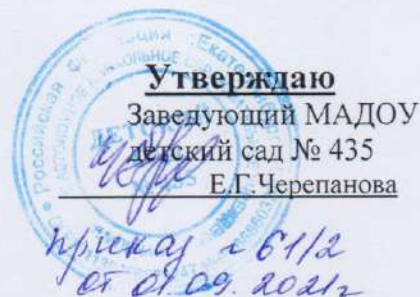 Утверждаю
Заведующий МАДОУ
детский сад № 435
Е.Г.Черепанова
приказ № 61/2
от 01.09.2021г